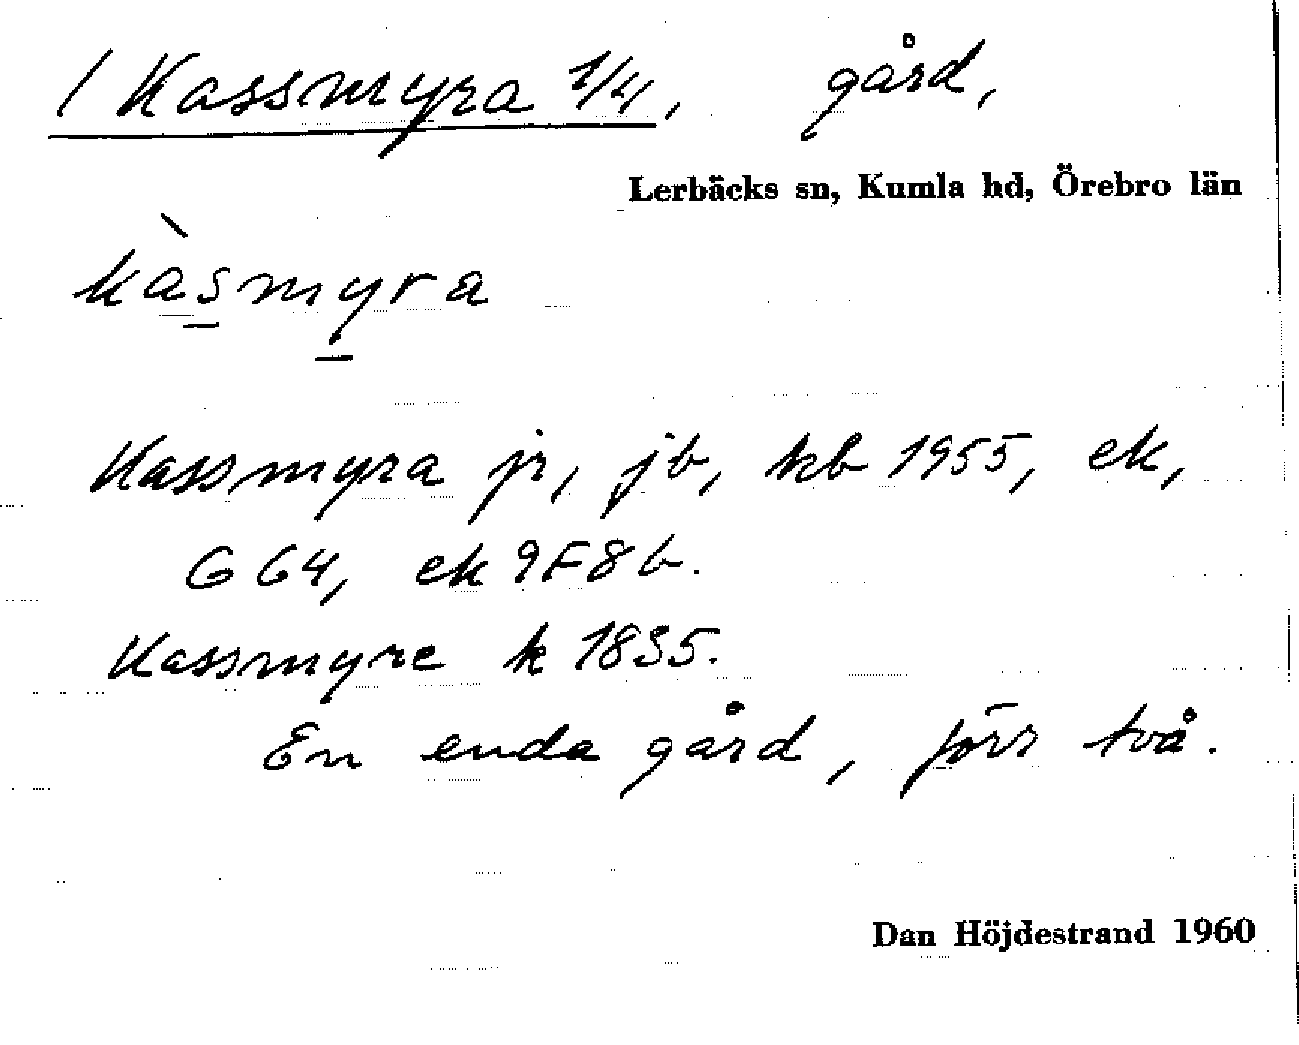 / Kassmyra 1/4, gård,
Lerbäcks sn, Kumla hd, Örebro län
kàsmyra
Kassmyra jr, jb, kb 1955, ek,
G G4, ek 9F8b.
Kassmyre k 1835.
En enda gård, förr två.
Dan Höjdestrand 1960